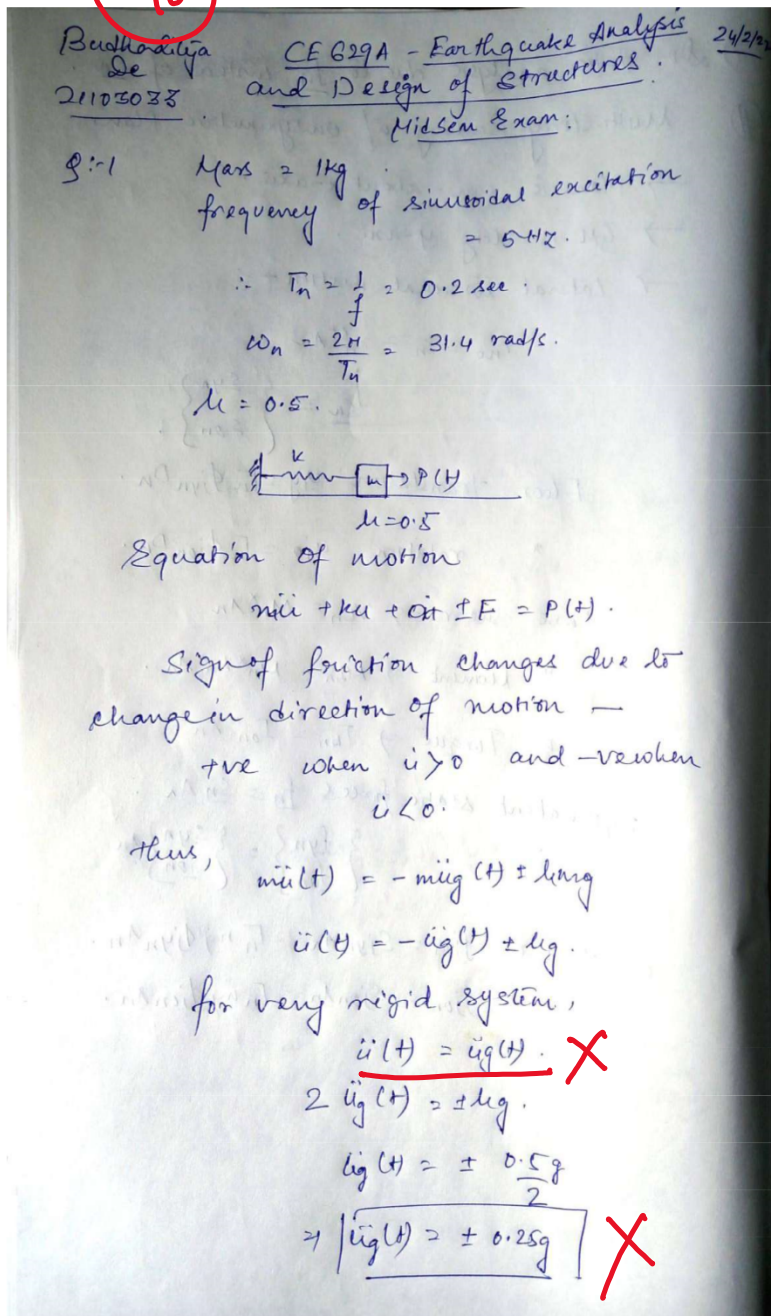 Budhaditya CE 629A - Earthquake Analysis 24/2/22
De and Design of Structures.
21103033 Midsem Exam:
Q:-1 Mass = 1kg
frequency of sinusoidal excitation
= 5HZ.
∴ Tn = 1/f = 0.2 sec.
ωn = 2π/Tn = 31.4 rad/s.
μ = 0.5.
k m → P(t)
μ=0.5
Equation of motion
mü + ku + cu̇ ± F = P(t).
Sign of friction changes due to
change in direction of motion —
+ve when u̇ > 0 and -ve when
u̇ < 0.
thus,
mü(t) = - müg (t) ± μmg
ü(t) = - üg(t) ± μg.
for very rigid system,
ü(t) = üg(t). X
2 üg (t) = ± μg.
üg (t) = ± 0.5g/2
⇒ üg(t) = ± 0.25g X